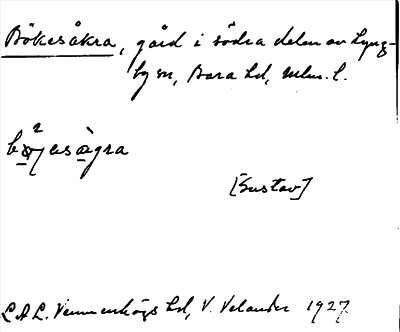 Bökesåkra, gård i södra delen av Lyng-
by sn, Bara hd, Mlm. l.
bø²jesàgra
[Gustav]
L.A.L. Vemmenhögs hd, V. Velander 1927.